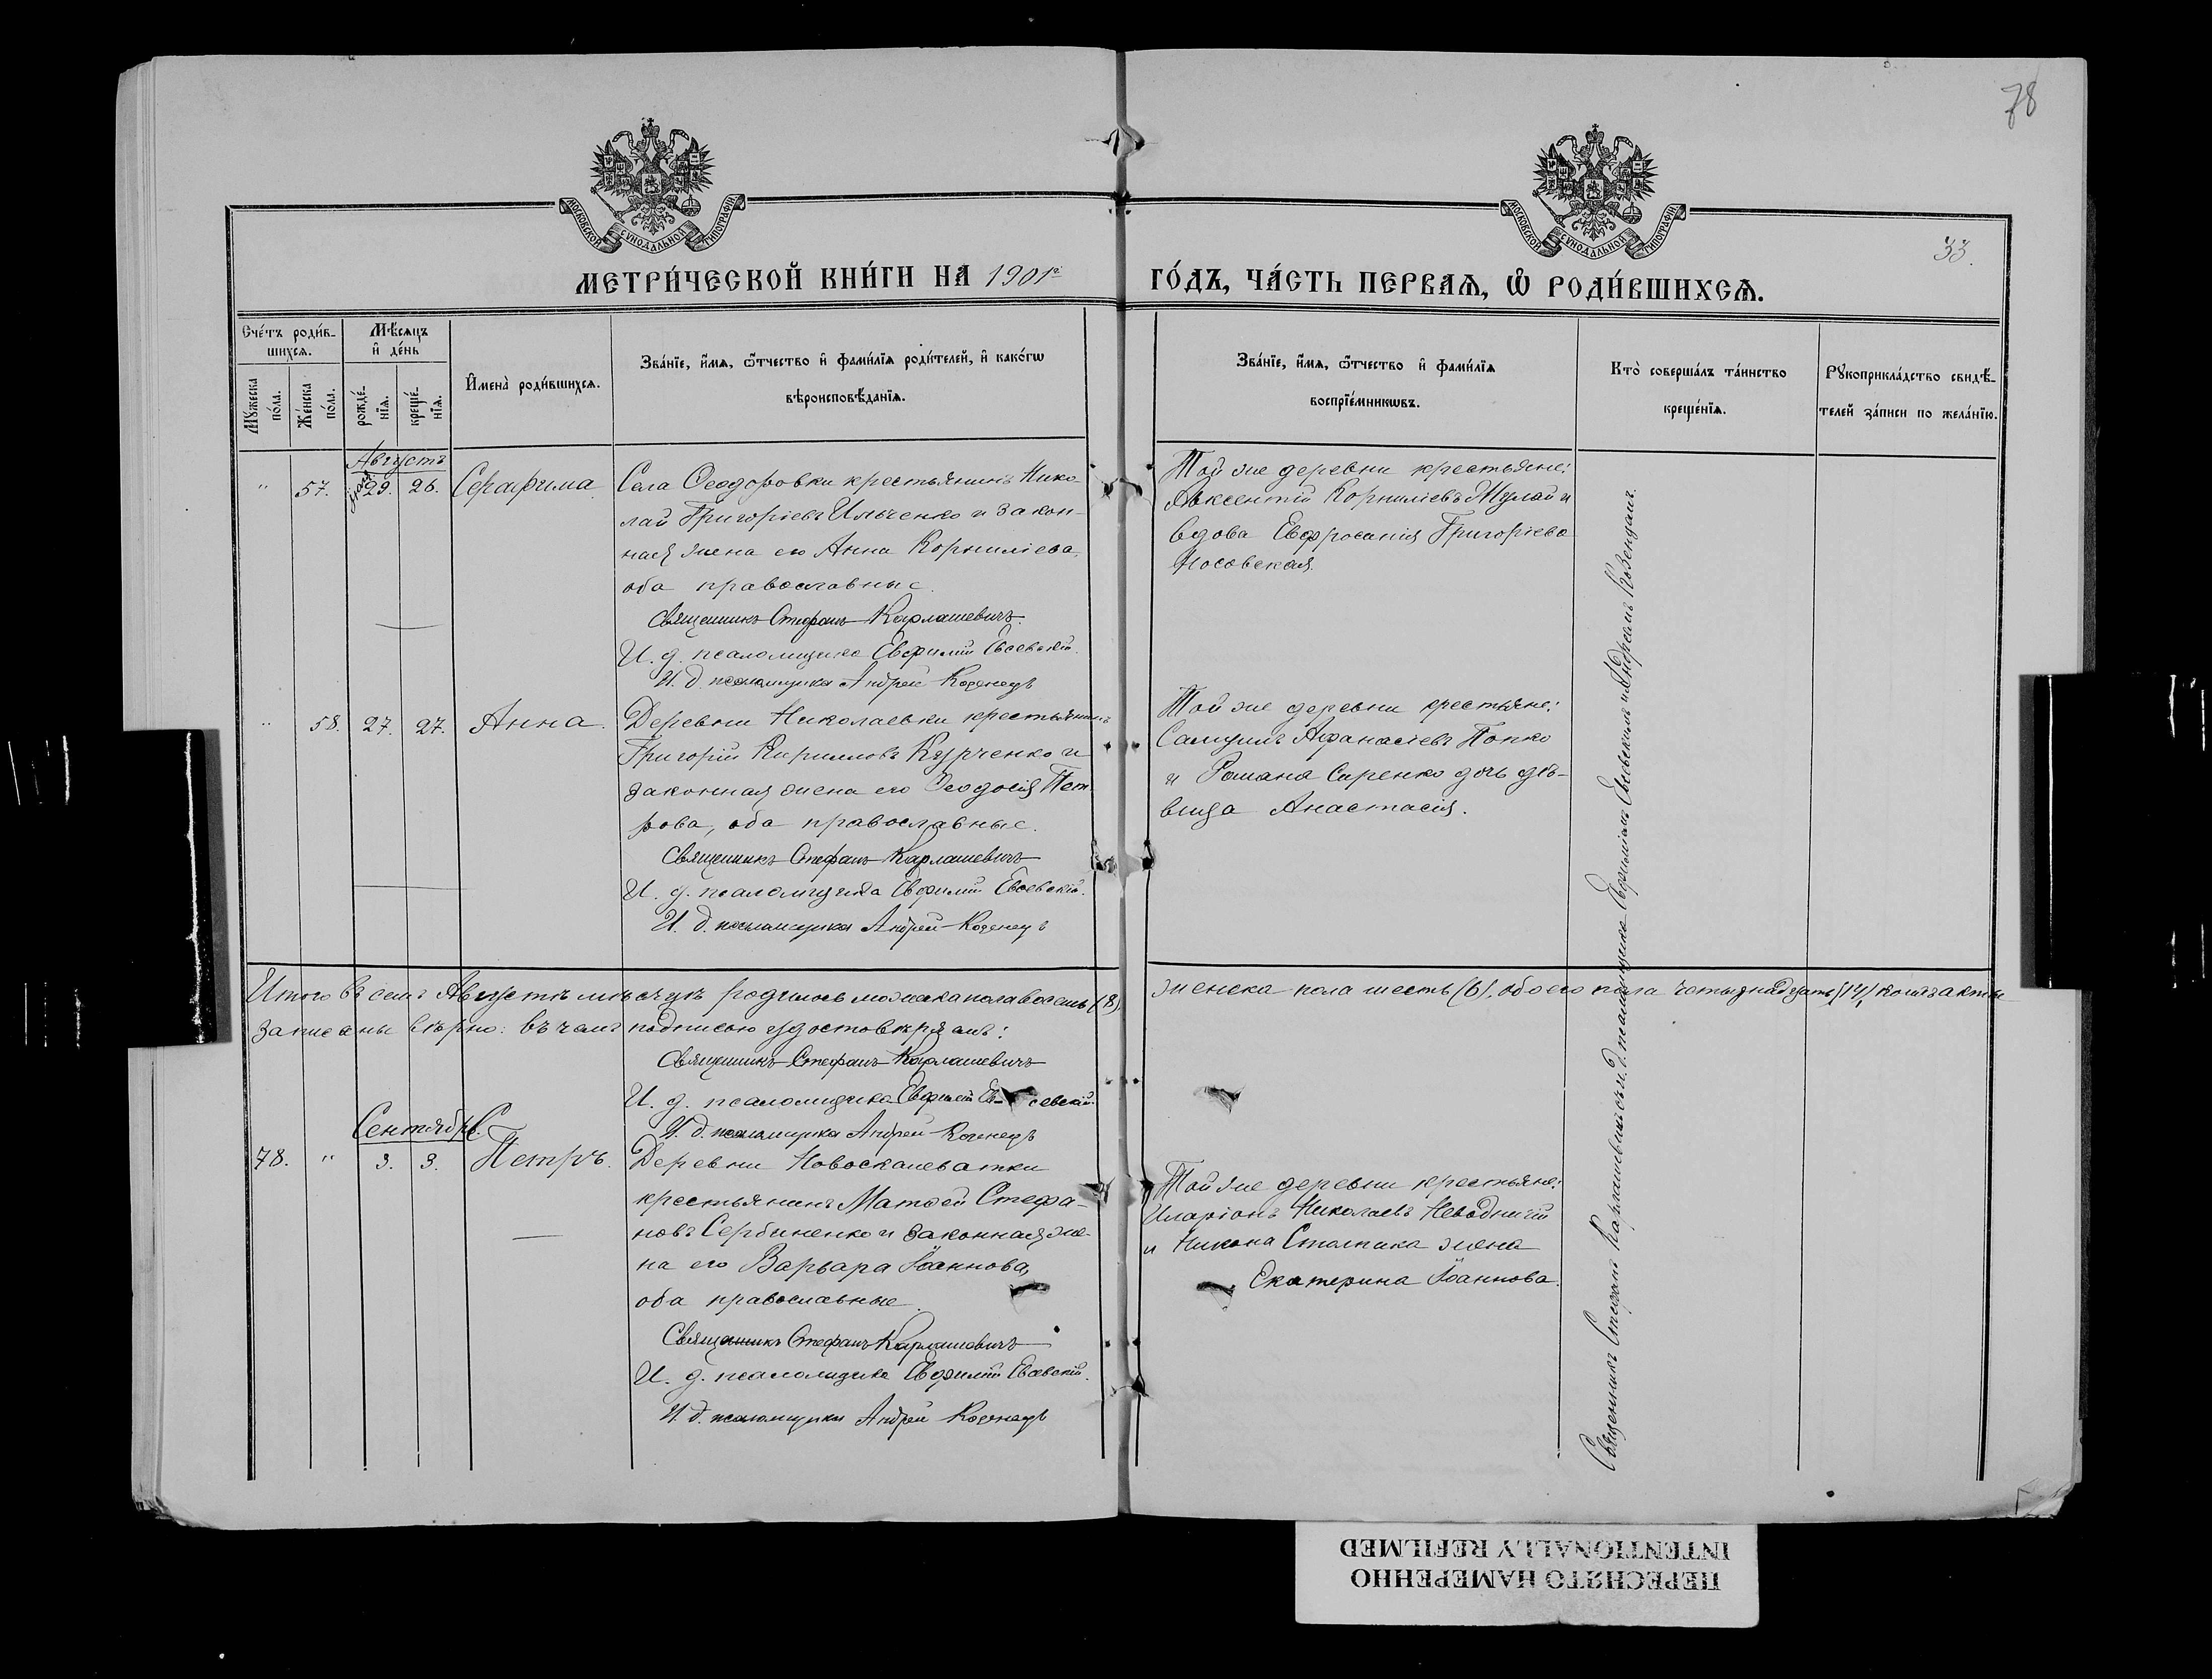 78
МОСКОВСКОЙ СѴНОДАЛЬНОЙ ТИПОГРАФІИ
МОСКОВСКОЙ СѴНОДАЛЬНОЙ ТИПОГРАФІИ
33.
МЕТРИ́ЧЕСКОЙ КНИ́ГИ НА 1901г.
ГО́ДЪ, ЧА́СТЬ ПЕРВАѦ, Ѡ҆ РОДИ́ВШИХСѦ.
Сче́тъ роди́в-
шихсѧ.
Мѣ́сѧцъ
и҆ де́нь
Мꙋ́жеска
по́ла.
Же́нска
по́ла.
рожде́-
нїѧ.
креще́-
нїѧ.
И҆мена̀ роди́вшихсѧ.
Зва́нїе, и҆́мѧ, ѻ҆́тчество и҆ фами́лїѧ роди́телей, и҆ како́гѡ
вѣроисповѣ́данїѧ.
Зва́нїе, и҆́мѧ, ѻ҆́тчество и҆ фами́лїѧ
воспрїе́мникѡвъ.
Кто̀ соверша́лъ та́инство
креще́нїѧ.
Рꙋкоприкла́дство свидѣ́-
телей за́писи по жела́нїю.
Августъ
" 57. 29. 26. Серафима
Села Ѳеодоровки крестьянинъ Нико-
лай Григоріевъ Ильченко и закон-
ная жена его Анна Корниліева,
оба православные.
Священникъ Стефанъ Карлашевичъ.
И. д. псаломщика Евфимій Евсевскій.
И. д. псаломщика Андрей Козенецъ
Той же деревни крестьяне:
Авксентій Корниліевъ Мулай и
вдова Евфросинія Григоріева
Носовская.
" 58. 27. 27. Анна.
Деревни Николаевки крестьянинъ
Григорій Кирилловъ Курченко и
законная жена его Ѳеодосія Пет-
рова, оба православные.
Священникъ Стефанъ Карлашевичъ
И. д. псаломщика Евфимій Евсевскій.
И. д. псаломщика Андрей Козенецъ
Той же деревни крестьяне:
Самуилъ Аѳанасіевъ Попко
и Романа Сиренко дочь дѣ-
вица Анастасія.
Итого въ семъ Августѣ мѣсяцѣ родилось мужеска пола восемь (8),
женска пола шесть (6), обоего пола четырнадцать (14) коихъ акты
записаны вѣрно: въ чемъ подписью удостовѣряемъ:
Священникъ Стефанъ Карлашевичъ
И. д. псаломщика Евфимій Евсевскій.
И. д. псаломщика Андрей Козенецъ
Сентябрь.
78. " 3. 3. Петръ.
Деревни Новоскалеватки
крестьянинъ Матѳей Стефа-
новъ Сербиненко и законная же-
на его Варвара Іоаннова,
оба православные.
Священникъ Стефанъ Карлашевичъ
И. д. псаломщика Евфимій Евсевскій.
И. д. псаломщика Андрей Козенецъ
Той же деревни крестьяне:
Иларіонъ Николаевъ Неводничій
и Никона Столпака жена
Екатерина Іоаннова.
Священникъ Стефанъ Карлашевичъ съ и. д. псаломщика Евфиміемъ Евсевскимъ и Андреемъ
ПЕРЕСНЯТО НАМЕРЕННО
INTENTIONALLY REFILMED